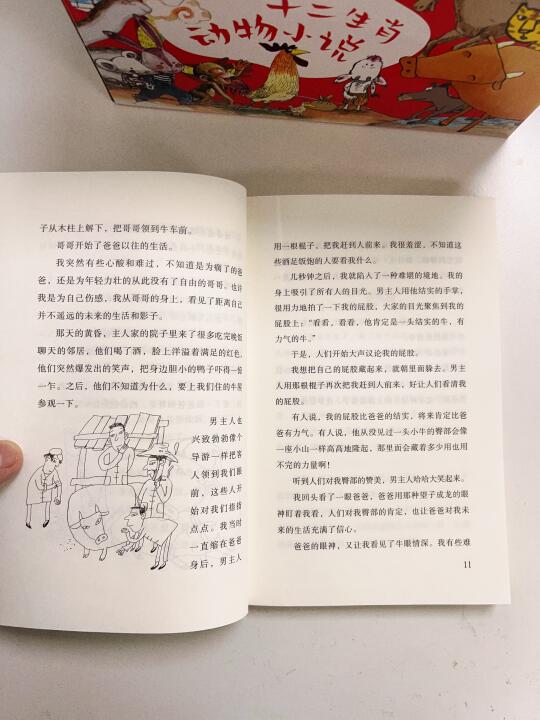 十二生肖
动物小说
子从木柱上解下,把哥哥领到牛车前。
哥哥开始了爸爸以往的生活。
我突然有些心酸和难过,不知道是为病了的爸
爸,还是为年轻力壮的从此没有了自由的哥哥。也许
我是为自己伤感,我从哥哥的身上,看见了距离自己
并不遥远的未来的生活和影子。
那天的黄昏,主人家的院子里来了很多吃完晚饭
聊天的邻居,他们喝了酒,脸上洋溢着满足的红色,
他们突然爆发出的笑声,把身边胆小的鸭子吓得一惊
一乍。之后,他们不知道为什么,要上我们住的牛屋
参观一下。
男主人也
兴致勃勃像个
导游一样把客
人领到我们眼
前,这些人开
始对我们指指
点点。我当时
一直缩在爸爸
身后,男主人
用一根棍子,把我赶到人前来。我很羞涩,不知道这
些酒足饭饱的人要看我什么。
几秒钟之后,我就陷入了一种难堪的境地。我的
身上吸引了所有人的目光。男主人用他结实的手掌,
很用力地拍了一下我的屁股,大家的目光聚焦到我的
屁股上:“看看,看看,他肯定是一头结实的牛,有
力气的牛。”
于是,人们开始大声议论我的屁股。
我想把自己的屁股藏起来,就朝里面躲去。男主
人用那根棍子再次把我赶到人前来,好让人们看清我
的屁股。
有人说,我的屁股比爸爸的结实,将来肯定比爸
爸有力气。有人说,他从没见过一头小牛的臀部会像
一座小山一样高高地隆起,那里面会藏着多少用也用
不完的力量啊!
听到人们对我臀部的赞美,男主人哈哈大笑起来。
我回头看了一眼爸爸,爸爸用那种望子成龙的眼
神盯着我看,人们对我臀部的肯定,也让爸爸对我未
来的生活充满了信心。
爸爸的眼神,又让我看见了牛眼情深。我有些难
11